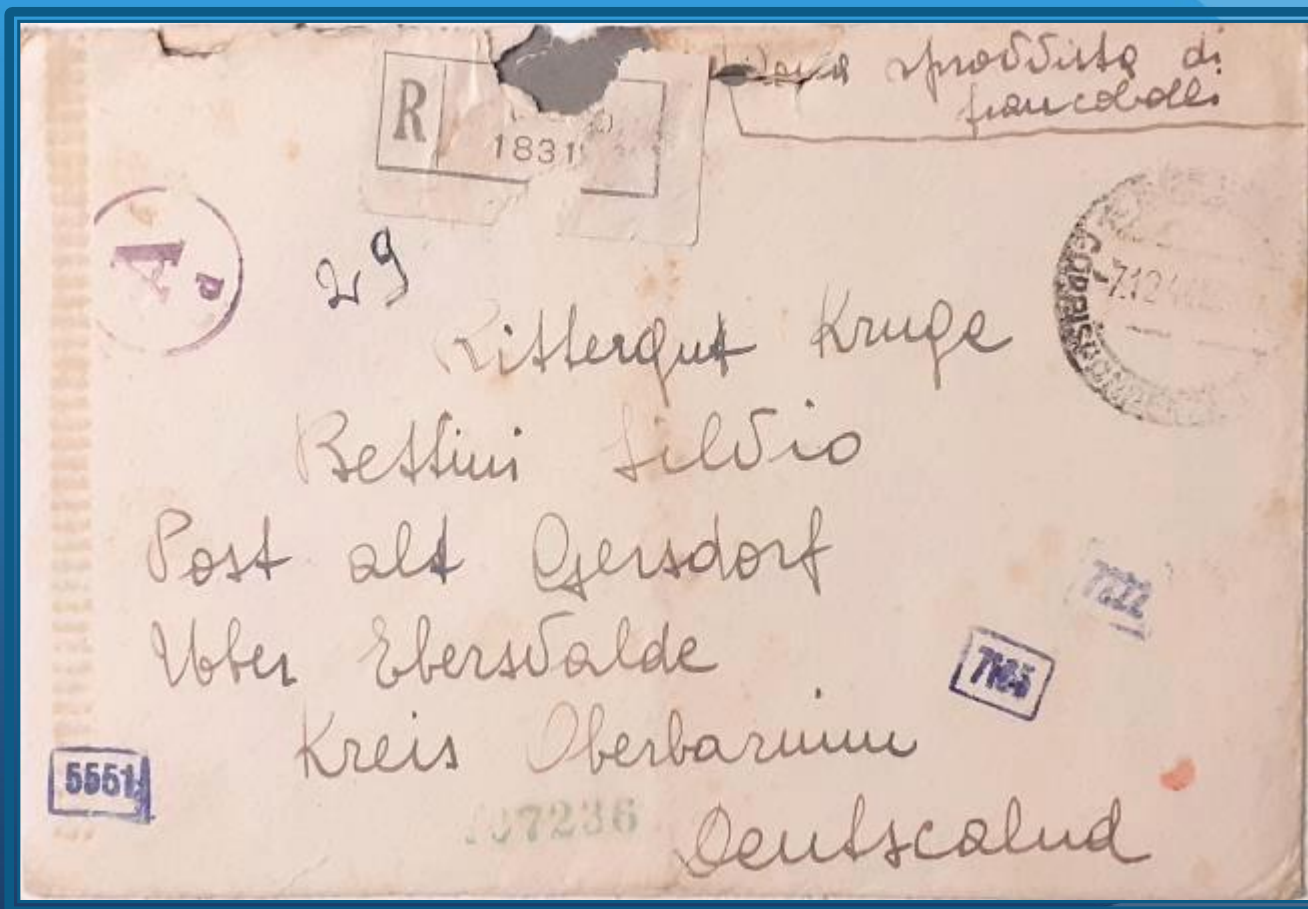 sprovvista di
francobolli
R
1831
A
a
29
Rittergut Kruge
Bettini Silvio
Post alt Gersdorf
Ubber Ebersvalde
Kreis Oberbarnim
Deutscalnd
-7.12.4
CORRISPOND
7822
7105
5551
37236